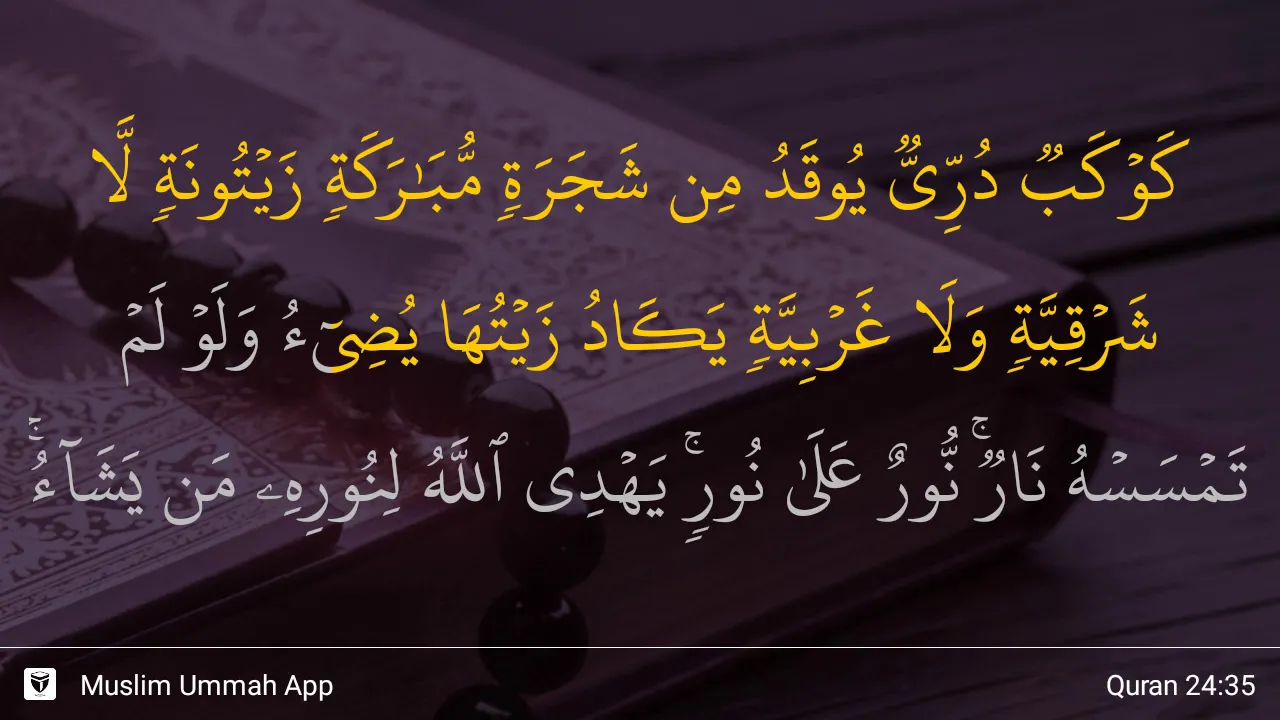 كَوۡكَبٌ دُرِّىٌّ يُوقَدُ مِن شَجَرَةٍ مُّبَـٰرَكَةٍ زَيۡتُونَةٍ لَّا
شَرۡقِيَّةٍ وَلَا غَرۡبِيَّةٍ يَكَادُ زَيۡتُهَا يُضِىٓءُ وَلَوۡ لَمۡ
تَمۡسَسۡهُ نَارٌۚ نُّورٌ عَلَىٰ نُورٍۚ يَهۡدِى ٱللَّهُ لِنُورِهِۦ مَن يَشَآءُۚ
Muslim Ummah App
Quran 24:35